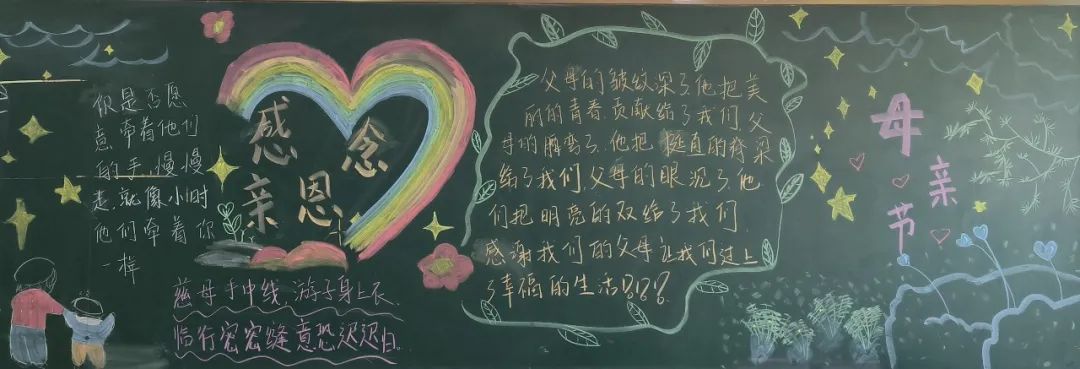 你是否愿
意牵着他们
的手,慢慢
走,就像小时
他们牵着你
一样
感念
亲恩
慈母手中线,游子身上衣,
临行密密缝意恐迟迟归。
父母的皱纹深了他把美
丽的青春,贡献给了我们,父
母的腰弯了,他把挺直的脊梁
给了我们,父母的眼沉了他
们把明亮的双给了我们,
感谢我们的父母让我们过上
了幸福的生活!!!
母
亲
节